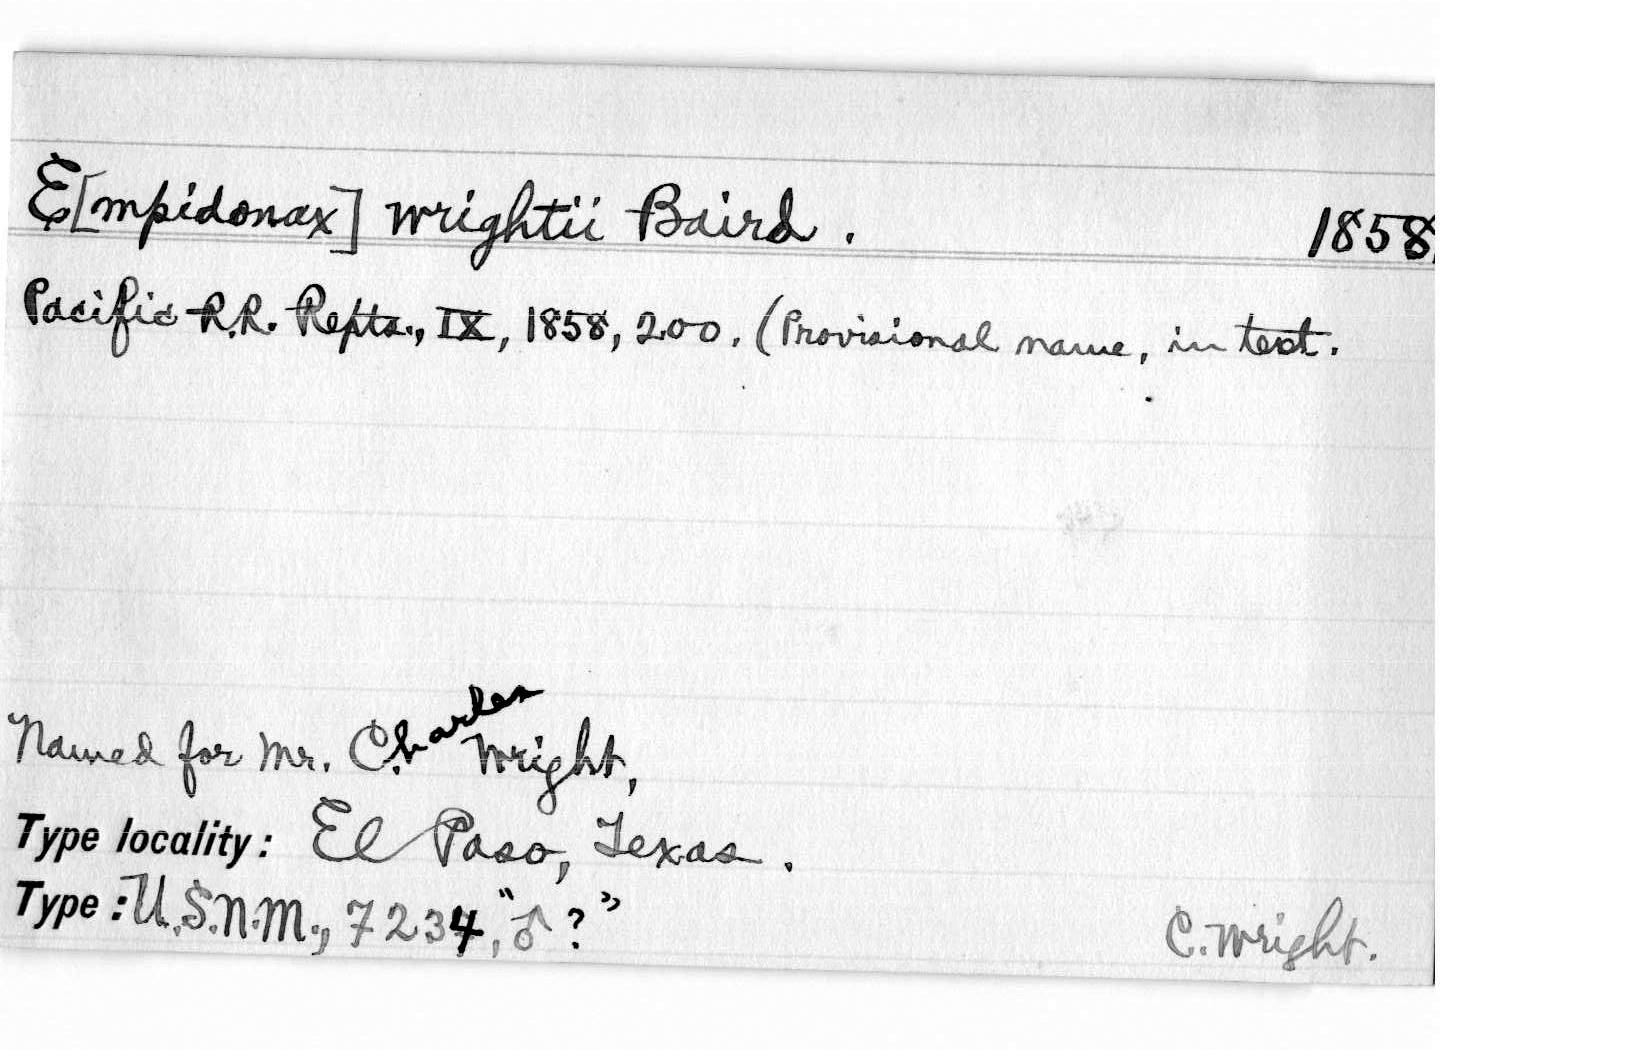 E[mpidonax] wrightii Baird. 1858
Pacific R.R. Repts., IX, 1858, 200. (Provisional name, in text.
Named for Mr. Charles Wright,
Type locality: El Paso, Texas.
Type: U.S.N.M., 7234, "♂?" C. Wright.